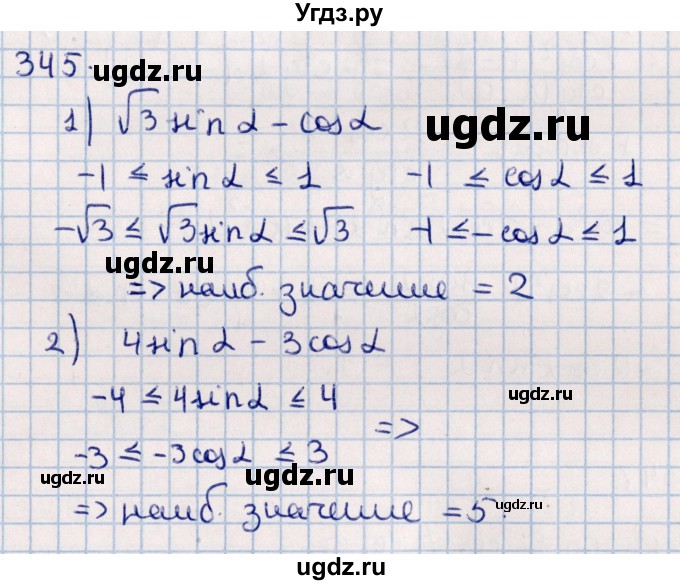 Угдз.ру
345.
ugdz.ru
1) √3 sin α - cos α
ugdz.ru
-1 ≤ sin α ≤ 1 -1 ≤ cos α ≤ 1
-√3 ≤ √3 sin α ≤ √3 -1 ≤ -cos α ≤ 1
ugdz.ru
=> наиб. значение = 2
2) 4 sin α - 3 cos α
-4 ≤ 4 sin α ≤ 4
ugdz.ru
=>
-3 ≤ -3 cos α ≤ 3
ugdz.ru
ugdz.ru
=> наиб. значение = 5.
ugdz.ru
ugdz.ru